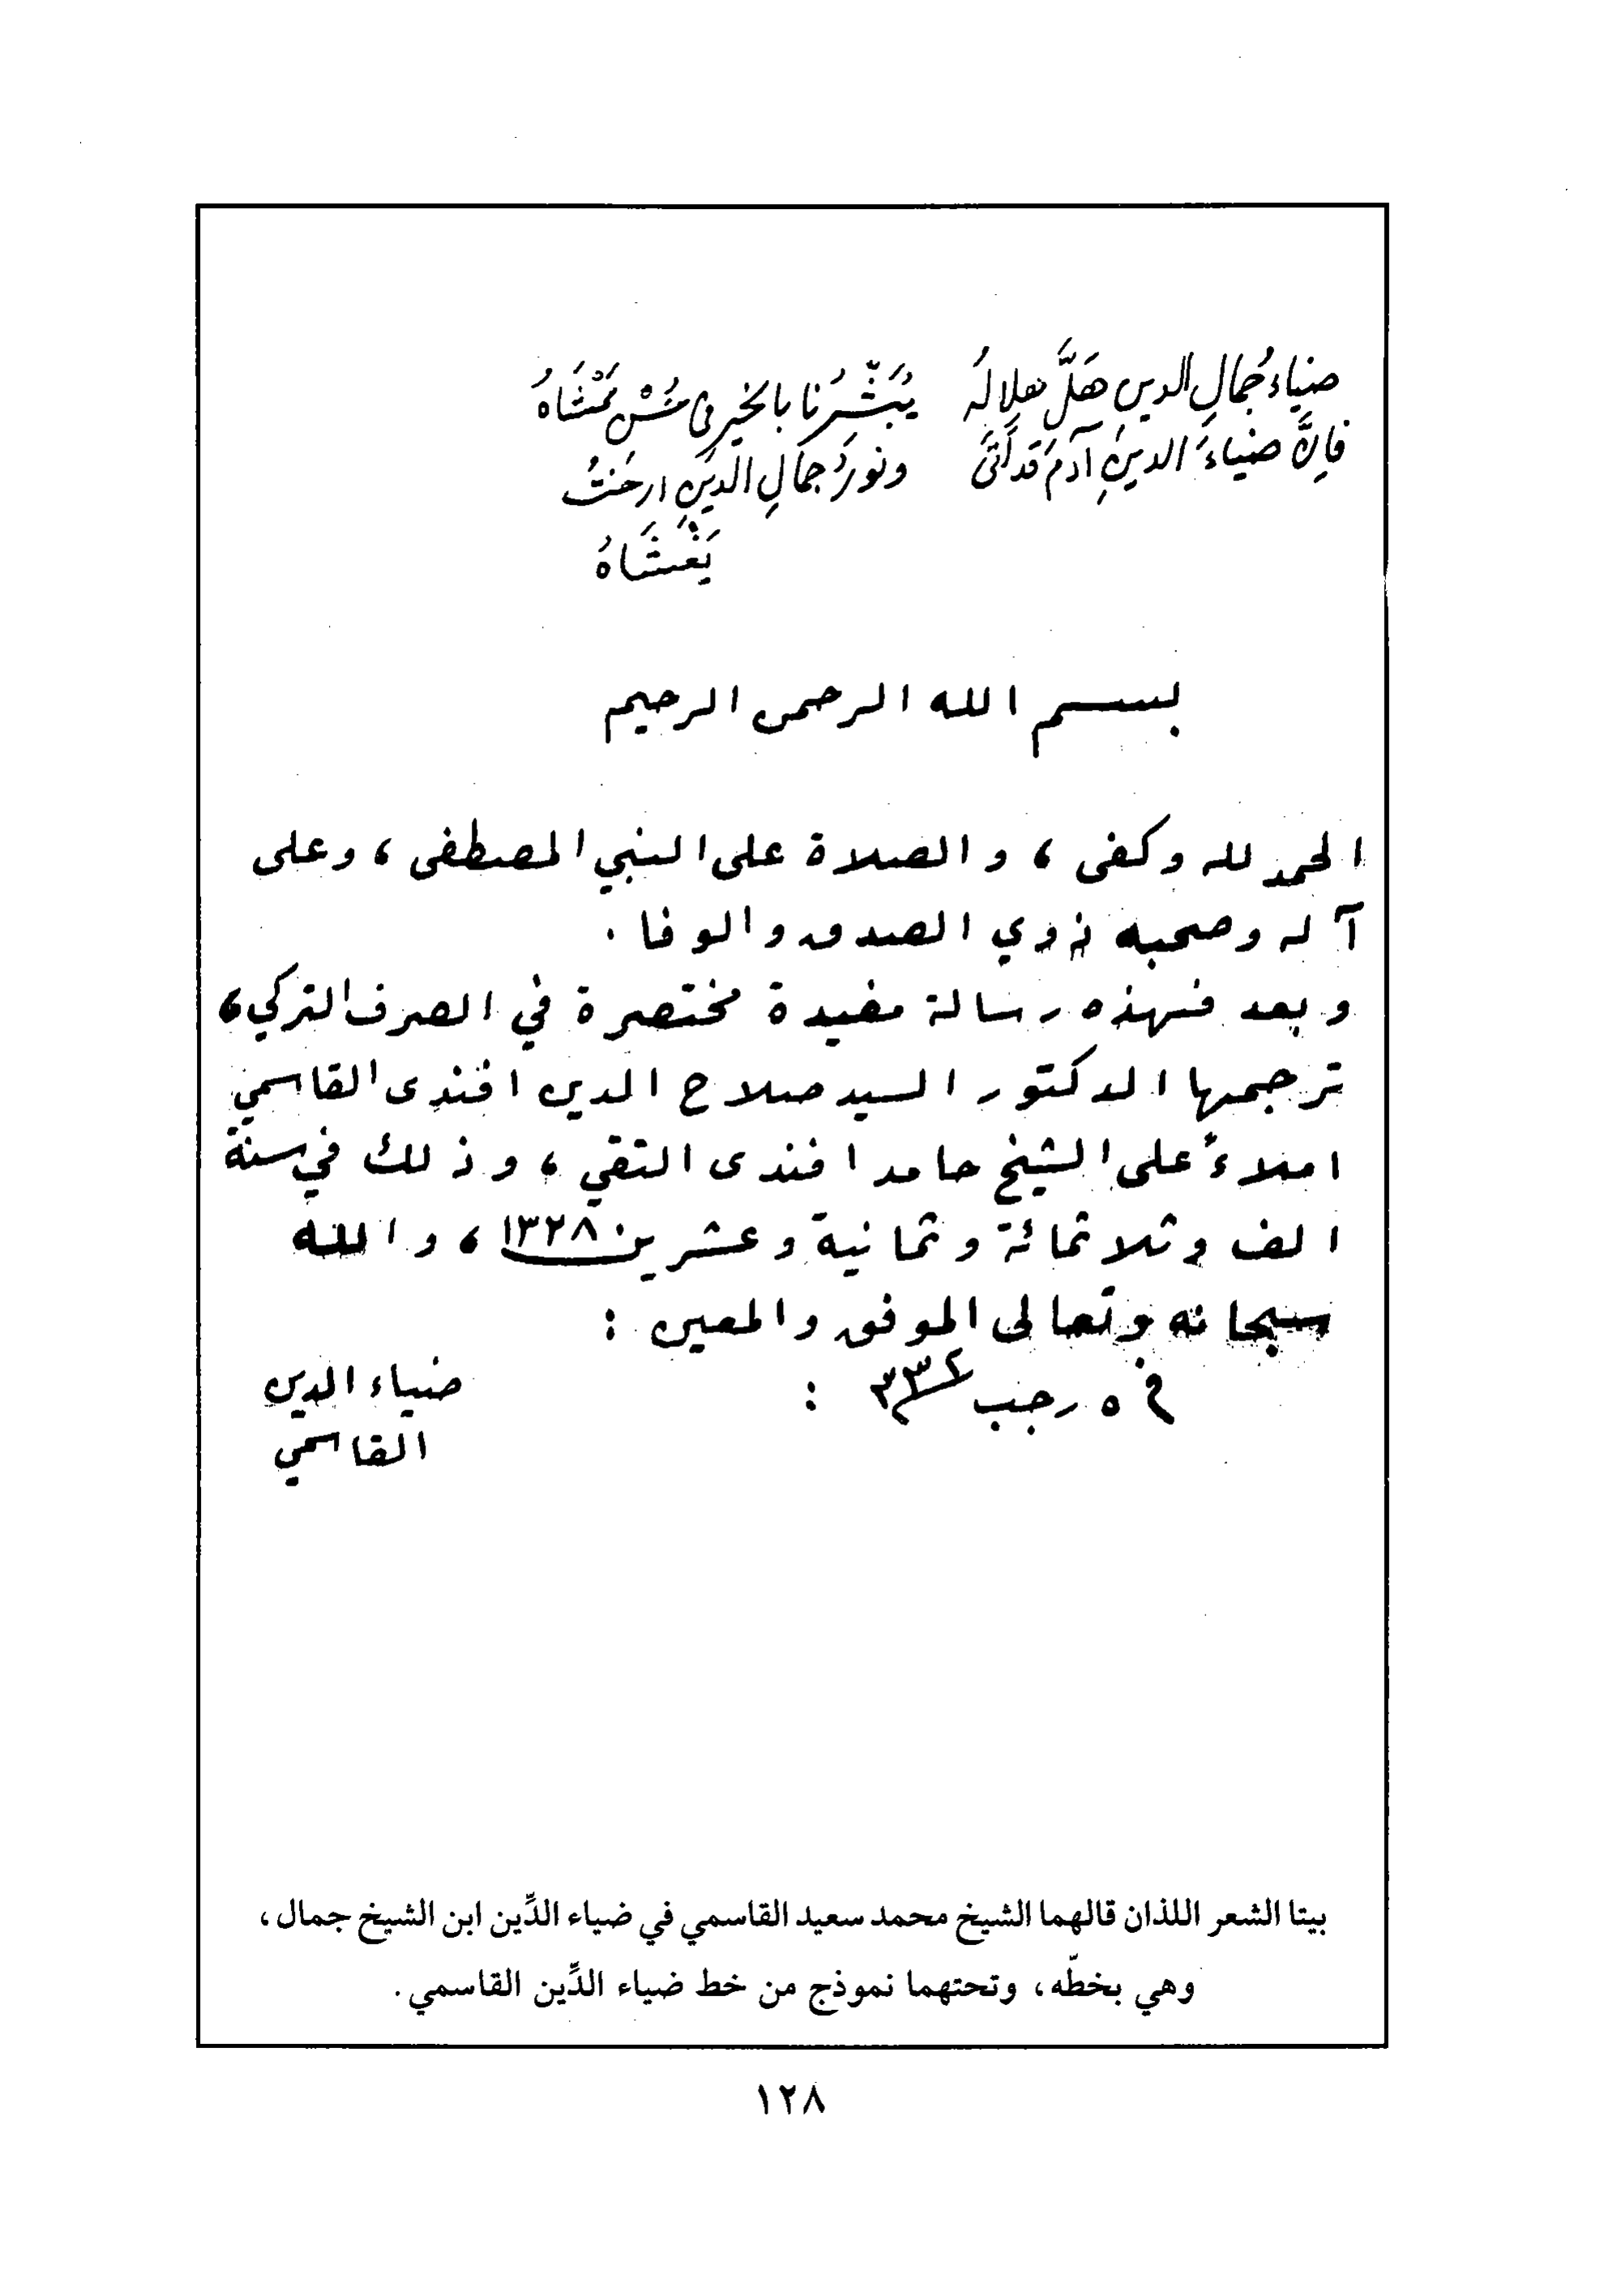 ضياءُ جُمالِ الدين هَلَّ هلالهُ يُبَشِّرُنا بالخير في
فإنَّ ضياءَ الدينِ آدمَ قد أتى ونورُ جمالِ الدينِ
يَغْشَاهُ
بسم الله الرحمن الرحيم
الحمد لله وكفى ، والصلاة على النبي المصطفى ، وعلى
آله وصحبه ذوي الصدق والوفا .
وبعد فهذه رسالة مفيدة مختصرة في الصرف التركي ،
ترجمها الدكتور السيد صلاح الدين افندى القاسمي
املاءً على الشيخ حامد افندى التقي ، وذلك في سنة
الف وثلاثمائة وثمانية وعشرين ١٣٢٨ ، والله
سبحانه وتعالى الموفق والمعين :
في ٥ رجب :
ضياء الدين
القاسمي
بيتا الشعر اللذان قالهما الشيخ محمد سعيد القاسمي في ضياء الدِّين ابن الشيخ جمال ،
وهي بخطّه ، وتحتهما نموذج من خط ضياء الدِّين القاسمي .
١٢٨